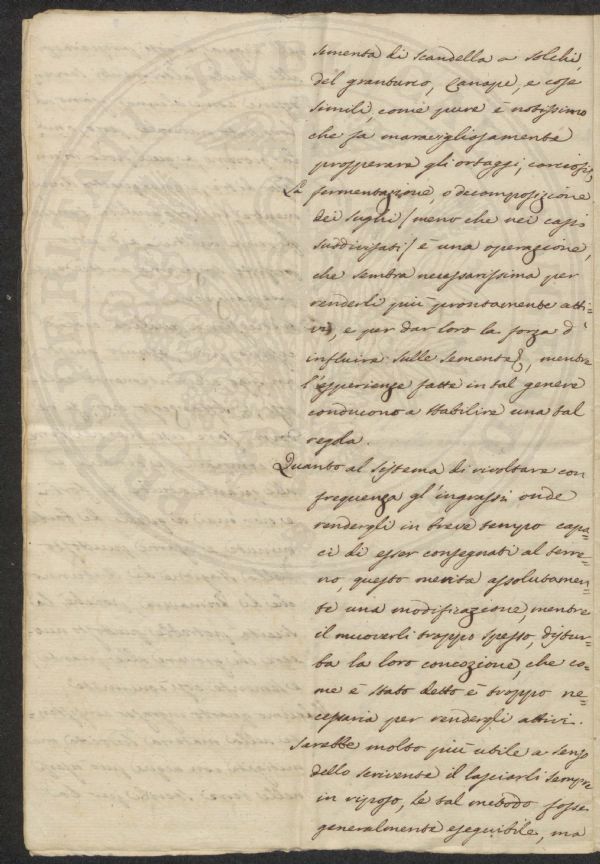 sementa di scandella a solchi,
del granturco, Canape, e cose
simili, come pure è notissimo
che fa maravigliosamente
prosperare gli ortaggi, conciosia.
La fermentazione, o decomposizione
dei sughi (meno che nei casi
suddivisati) è una operazione,
che sembra necessarissima per
renderli più prontamente atti=
vi, e per dar loro la forza d'
influire sulle semente, mentre
l'esperienze fatte in tal genere
conducono a stabilire una tal
regola.
Quanto al sistema di rivoltare con
frequenza gl'ingrassi onde
rendergli in breve tempo capa=
ci di esser consegnati al terre=
no, questo merita assolutamen=
te una modificazione, mentre
il muoverli troppo spesso, distur=
ba la loro concozione, che co=
me è stato detto è troppo ne=
cessaria per rendergli attivi.
Sarebbe molto più utile a senso
dello scrivente il lasciarli sempre
in riposo, se tal metodo fosse
generalmente eseguibile, ma